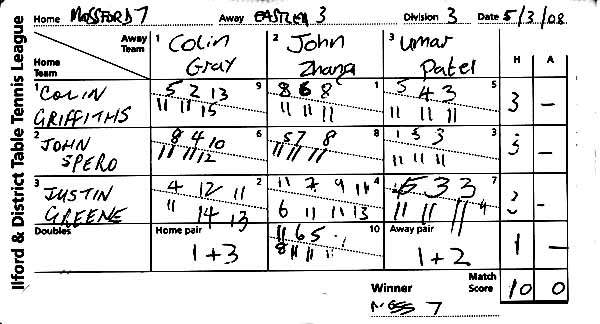 Ilford & District Table Tennis League
Home MOSSFORD 7 Away EASTLEA 3 Division 3 Date 5/3/08
Away Team 1 Colin Gray 2 John Zhang 3 Umar Patel H A
Home Team
1 COLIN GRIFFITHS
5 2 13 9 8 6 8 1 5 4 3 5
11 11 15 11 11 11 11 11 11
3 —
2 JOHN SPERO
9 4 10 6 5 7 8 8 1 5 3 3
11 11 12 11 11 11 11 11 11
3 —
3 JUSTIN GREENE
4 12 11 2 11 7 9 11 4 5 3 3 7
11 14 13 6 11 11 13 11 11 11
3 —
Doubles Home pair 11 6 5 10 Away pair
1+3 8 11 11 11 1+2
1 —
Winner 7 Match Score 10 0